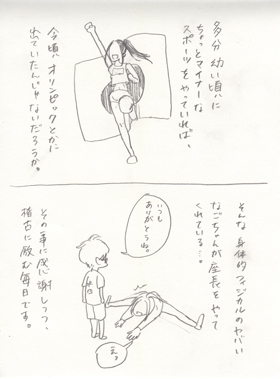 多分幼い頃に
ちょっとマイナーな
スポーツをやっていれば、
今頃オリンピックとかに
出ていたんじゃないだろうか。
そんな身体的フィジカルのヤバい
なごちゃんが座長をやって
くれている…。
いつも
ありがとうね。
えっ
その事に感謝しつつ、
稽古に励む毎日です。